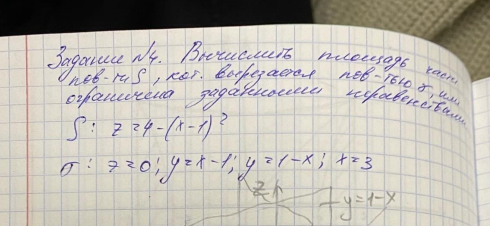 Задание №4. Вычислить площадь част.
пов-ти S, кот. вырезается пов-тью σ, или
ограничена заданными неравенствами
S: z=4-(x-1)²
σ: z=0; y=x-1; y=1-x; x=3
z
y=1-x